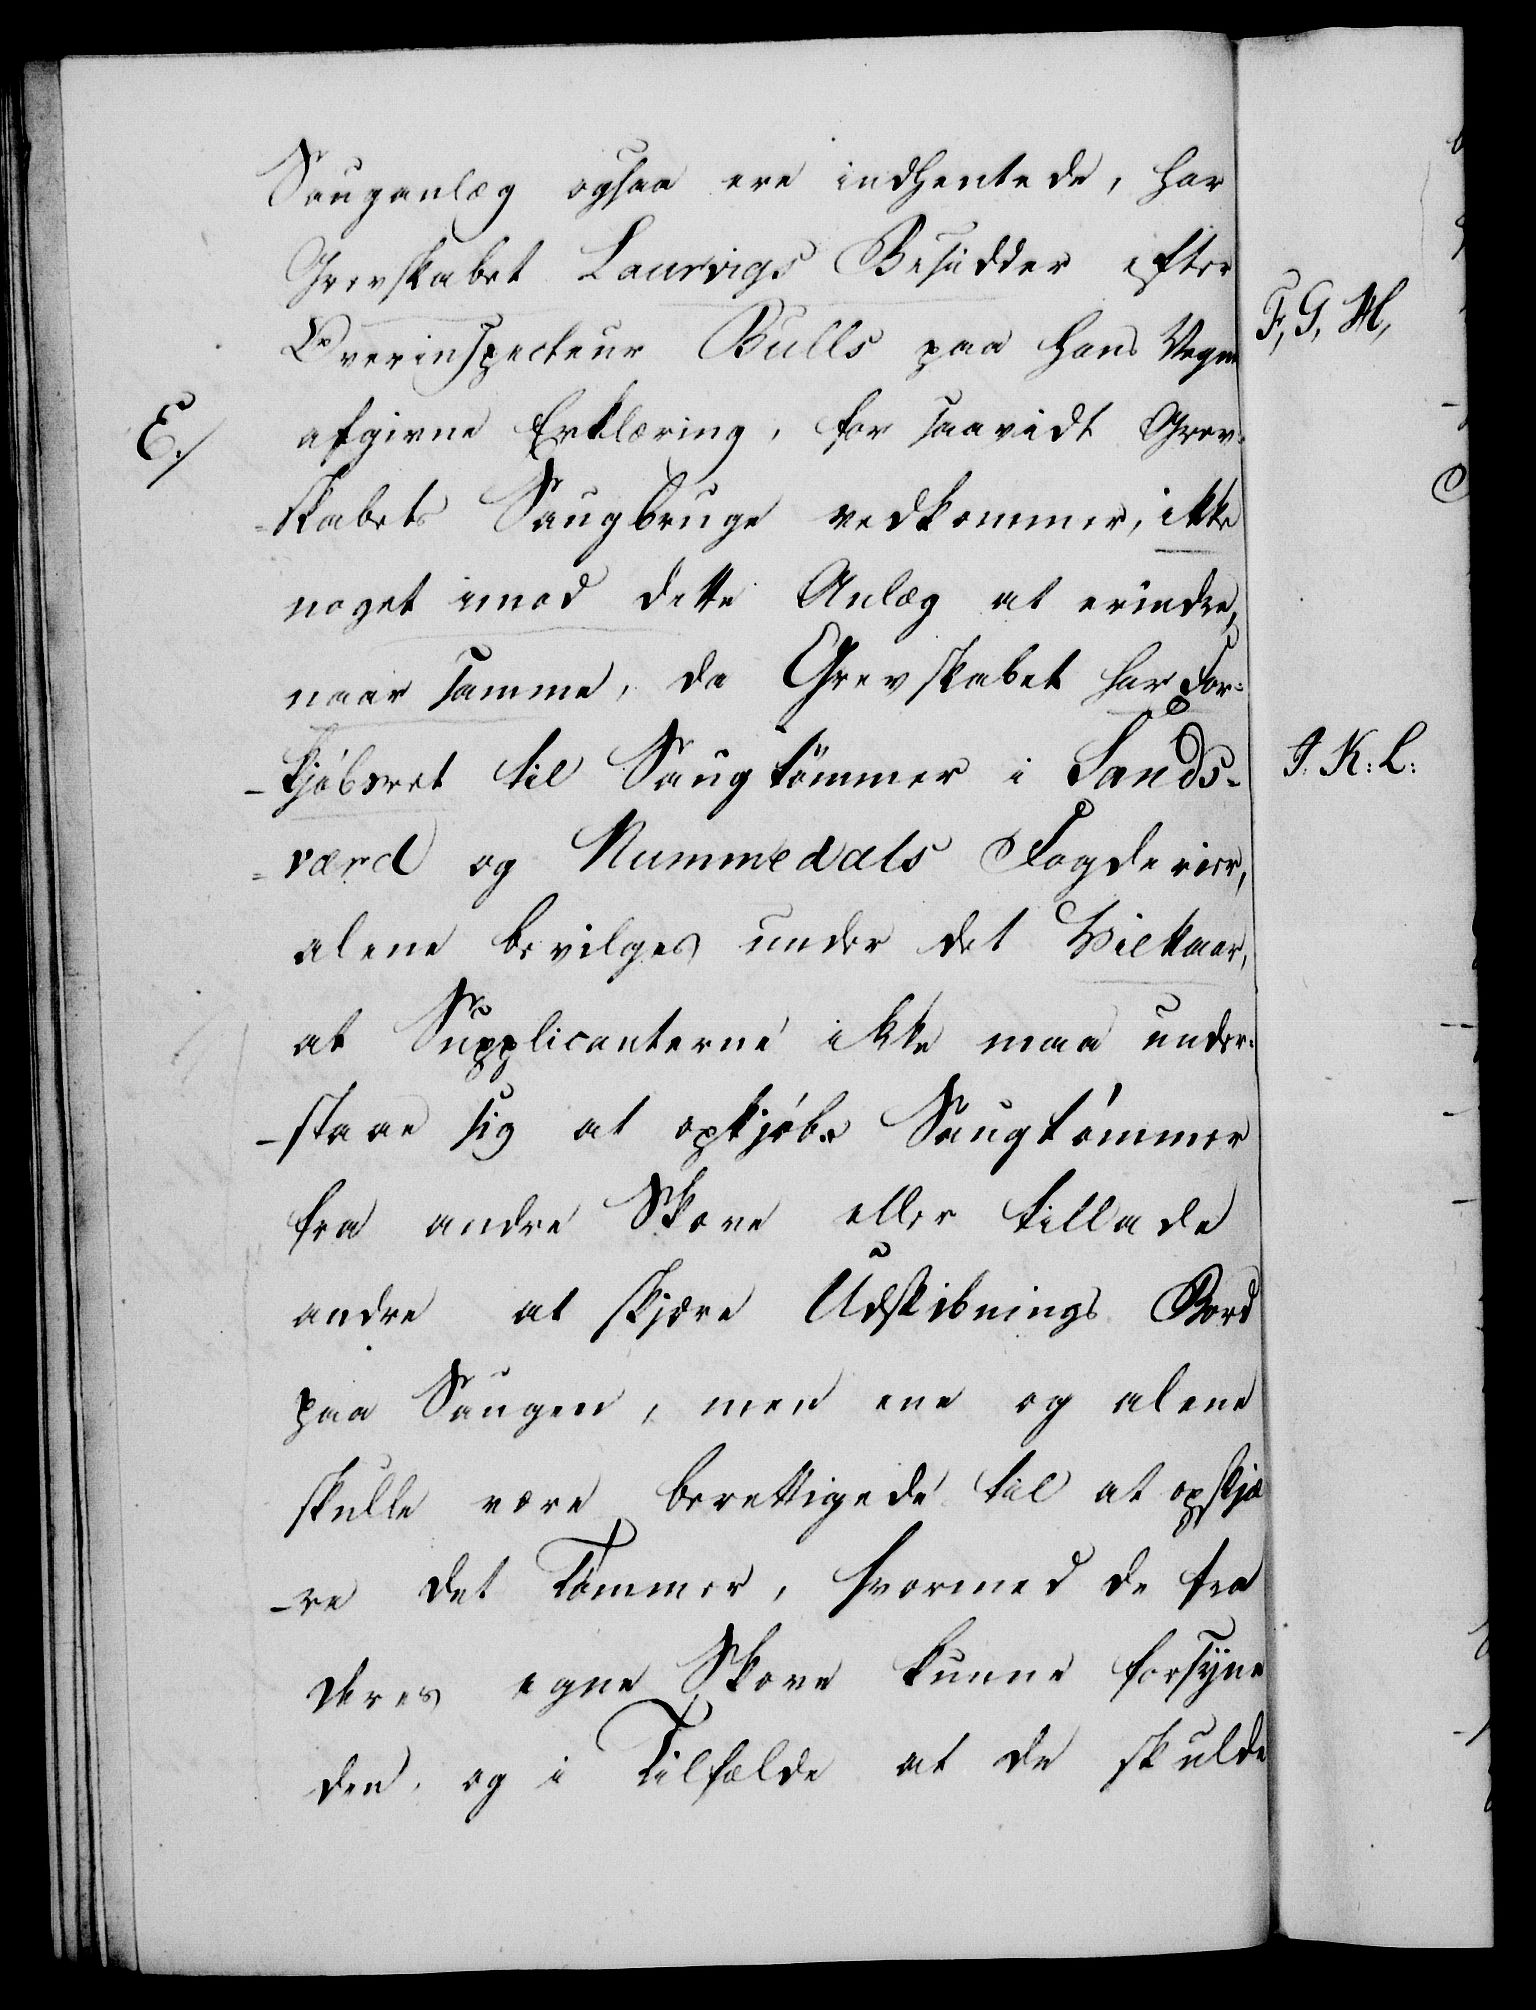 Sauganlæg ogsaa ere indhentede, har
Grevskabet Laurvigs Besidder efter
Overinspecteur Bulls paa hans Vegne
E./ afgivne Erklæring, for saavidt Grev-
-skabets Saugbruge vedkommer, ikke
noget imod dette Anlæg at erindre,
naar samme, da Grevskabet har For-
-kjøbsret til Saugtømmer i Sands-
-værd og Nummedals Fogderier,
alene bevilges under det Vilkaar,
at Supplicanterne ikke maa under-
-staae sig at opkjøbe Saugtømmer
fra andre Skove eller tillade
andre at skjære Udskibnings Bord
paa Saugen, men ene og alene
skulle være berettigede til at opskjæ
-re det Tømmer, hvormed de fra
deres egne Skove kunne forsyne
den, og i Tilfælde at de skulde
F, G, H,
I. K: L: